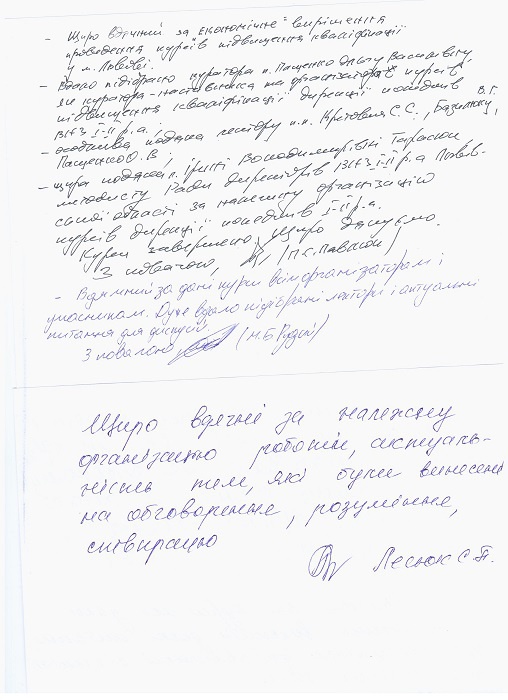 - Щиро вдячний за "економічне" вирішення
проведення курсів підвищення кваліфікації
у м. Львові.
- Вдало підібрано куратора п. Пащенко Ольгу Василівну,
як куратора-наставника та організатора курсів
підвищення кваліфікації дирекції коледжів
ВНЗ І-ІІ р.а.;
- особлива подяка лектору п.п. С.С., В.Г.
Пащенко О.В.;
- щира подяка п. Ірині Володимирівні Тарасюк
методисту Ради директорів ВНЗ І-ІІ р.а Львів-
ської області за належну організацію
курсів дирекції коледжів І-ІІ р.а.
Курси завершено, Щиро дякуємо.
З повагою, (П.С.)
- Вдячний за дані курси всім організаторам і
учасникам. Дуже вдало підібрані лектори і актуальні
питання для дискусії.
З повагою (Н.Б.)
Щиро вдячні за належну
організацію роботи, актуаль-
ність тем, які були винесені
на обговорення, розуміння,
співпрацю
Лесюк С.П.